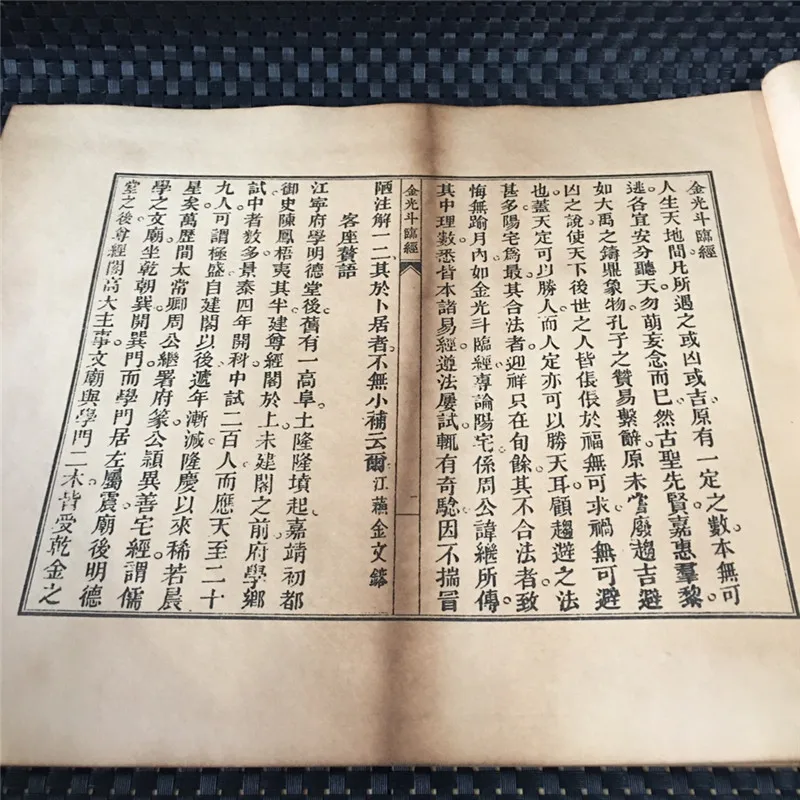 金光斗臨經
人生天地間凡所遇之或凶或吉原有一定之數本無可
逃各宜安分聽天勿萌妄念而巳然古聖先賢嘉惠羣黎
如大禹之鑄鼎象物孔子之贊易繫辭原未嘗廢趨吉避
凶之說使天下後世之人皆倀倀於福無可求禍無可避
也蓋天定可以勝人而人定亦可以勝天耳顧趨避之法
甚多陽宅爲最其合法者迎祥只在旬餘其不合法者致
悔無踰月內如金光斗臨經專論陽宅係周公諱繼所傳
其中理數悉皆本諸易經遵法屢試輒有奇驗因不揣冒
金光斗臨經
一
陋注解一二其於卜居者不無小補云爾 江蘇金文
客座贅語
江寧府學明德堂後舊有一高阜土隆隆墳起嘉靖初都
御史陳鳳梧夷其半建尊經閣於上未建閣之前府學鄉
試中者數多景泰四年開科中試二百人而應天至二十
九人可謂極盛自建閣以後遞年漸減隆慶以來稀若晨
星矣萬歷間太常卿周公繼署府篆公頴異善宅經謂儒
學之文廟坐乾朝巽開巽門而學門居左屬震廟後明德
堂之後尊經閣高大主事文廟與學門二木皆受乾金之